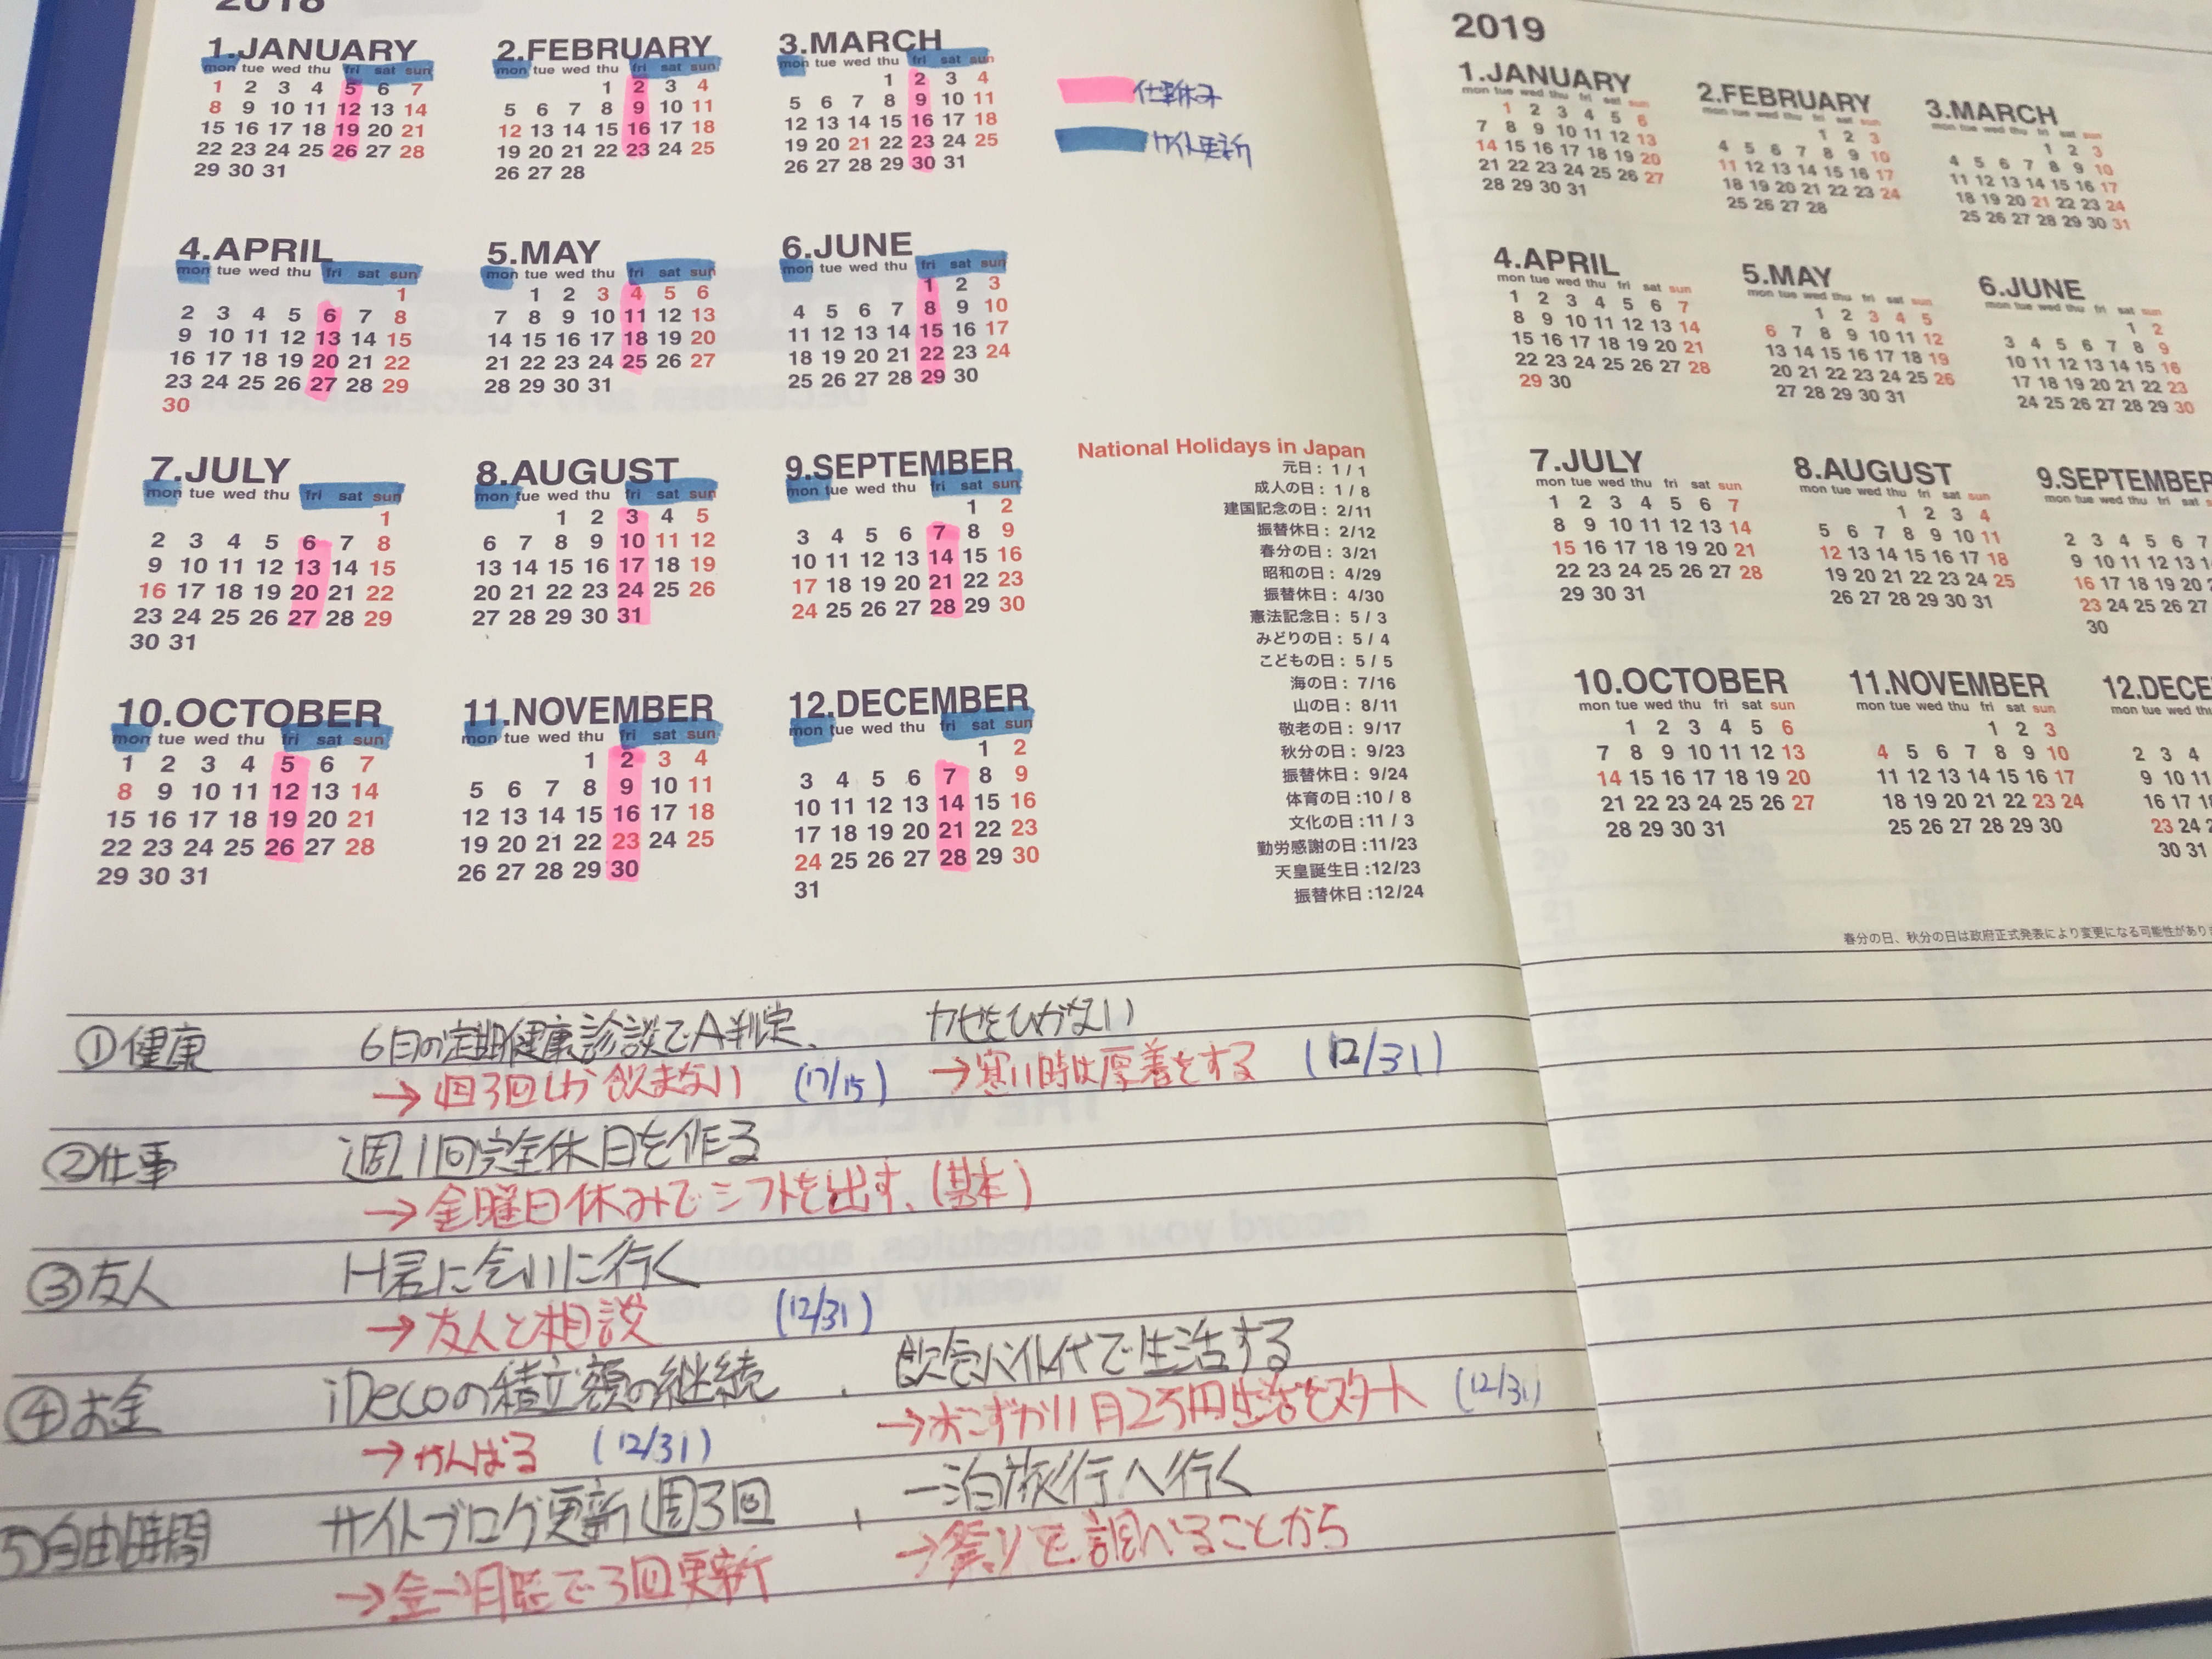 2018
1.JANUARY
mon tue wed thu fri sat sun
1 2 3 4 5 6 7
8 9 10 11 12 13 14
15 16 17 18 19 20 21
22 23 24 25 26 27 28
29 30 31
2.FEBRUARY
mon tue wed thu fri sat sun
1 2 3 4
5 6 7 8 9 10 11
12 13 14 15 16 17 18
19 20 21 22 23 24 25
26 27 28
3.MARCH
mon tue wed thu fri sat sun
1 2 3 4
5 6 7 8 9 10 11
12 13 14 15 16 17 18
19 20 21 22 23 24 25
26 27 28 29 30 31
仕事休み
サイト更新
4.APRIL
mon tue wed thu fri sat sun
1
2 3 4 5 6 7 8
9 10 11 12 13 14 15
16 17 18 19 20 21 22
23 24 25 26 27 28 29
30
5.MAY
mon tue wed thu fri sat sun
1 2 3 4 5 6
7 8 9 10 11 12 13
14 15 16 17 18 19 20
21 22 23 24 25 26 27
28 29 30 31
6.JUNE
mon tue wed thu fri sat sun
1 2 3
4 5 6 7 8 9 10
11 12 13 14 15 16 17
18 19 20 21 22 23 24
25 26 27 28 29 30
7.JULY
mon tue wed thu fri sat sun
1
2 3 4 5 6 7 8
9 10 11 12 13 14 15
16 17 18 19 20 21 22
23 24 25 26 27 28 29
30 31
8.AUGUST
mon tue wed thu fri sat sun
1 2 3 4 5
6 7 8 9 10 11 12
13 14 15 16 17 18 19
20 21 22 23 24 25 26
27 28 29 30 31
9.SEPTEMBER
mon tue wed thu fri sat sun
1 2
3 4 5 6 7 8 9
10 11 12 13 14 15 16
17 18 19 20 21 22 23
24 25 26 27 28 29 30
10.OCTOBER
mon tue wed thu fri sat sun
1 2 3 4 5 6 7
8 9 10 11 12 13 14
15 16 17 18 19 20 21
22 23 24 25 26 27 28
29 30 31
11.NOVEMBER
mon tue wed thu fri sat sun
1 2 3 4
5 6 7 8 9 10 11
12 13 14 15 16 17 18
19 20 21 22 23 24 25
26 27 28 29 30
12.DECEMBER
mon tue wed thu fri sat sun
1 2
3 4 5 6 7 8 9
10 11 12 13 14 15 16
17 18 19 20 21 22 23
24 25 26 27 28 29 30
31
National Holidays in Japan
元日: 1 / 1
成人の日: 1 / 8
建国記念の日: 2/11
振替休日: 2/12
春分の日: 3/21
昭和の日: 4/29
振替休日: 4/30
憲法記念日: 5 / 3
みどりの日: 5 / 4
こどもの日: 5 / 5
海の日: 7/16
山の日: 8/11
敬老の日: 9/17
秋分の日: 9/23
振替休日: 9/24
体育の日:10 / 8
文化の日:11 / 3
勤労感謝の日:11/23
天皇誕生日:12/23
振替休日:12/24
①健康 6月の定期健康診談でA判定、 カゼをひかない
→週3回しか飲まない (17/15) →寒い時は厚着をする (12/31)
②仕事 週1回完全休日を作る
→金曜日休みでシフトを出す、(基本)
③友人 H君に会いに行く
→友人と相談 (12/31)
④お金 iDecoの積立額の継続 、 飲食バイト代で生活する
→がんばる (12/31) →おこずかい1月2万円生活をスタート (12/31)
⑤自由時間 サイトブログ更新週3回 、 一泊旅行へ行く
→金〜月曜で3回更新 →祭りを調べることから
2019
1.JANUARY
mon tue wed thu fri sat sun
1 2 3 4 5 6
7 8 9 10 11 12 13
14 15 16 17 18 19 20
21 22 23 24 25 26 27
28 29 30 31
2.FEBRUARY
mon tue wed thu fri sat sun
1 2 3
4 5 6 7 8 9 10
11 12 13 14 15 16 17
18 19 20 21 22 23 24
25 26 27 28
3.MARCH
mon tue wed thu fri sat sun
1 2 3
4 5 6 7 8 9 10
11 12 13 14 15 16 17
18 19 20 21 22 23 24
25 26 27 28 29 30 31
4.APRIL
mon tue wed thu fri sat sun
1 2 3 4 5 6 7
8 9 10 11 12 13 14
15 16 17 18 19 20 21
22 23 24 25 26 27 28
29 30
5.MAY
mon tue wed thu fri sat sun
1 2 3 4 5
6 7 8 9 10 11 12
13 14 15 16 17 18 19
20 21 22 23 24 25 26
27 28 29 30 31
6.JUNE
mon tue wed thu fri sat sun
1 2
3 4 5 6 7 8 9
10 11 12 13 14 15 16
17 18 19 20 21 22 23
24 25 26 27 28 29 30
7.JULY
mon tue wed thu fri sat sun
1 2 3 4 5 6 7
8 9 10 11 12 13 14
15 16 17 18 19 20 21
22 23 24 25 26 27 28
29 30 31
8.AUGUST
mon tue wed thu fri sat sun
1 2 3 4
5 6 7 8 9 10 11
12 13 14 15 16 17 18
19 20 21 22 23 24 25
26 27 28 29 30 31
9.SEPTEMBER
mon tue wed thu fri sat
2 3 4 5 6 7
9 10 11 12 13
16 17 18 19 20
23 24 25 26 27
30
10.OCTOBER
mon tue wed thu fri sat sun
1 2 3 4 5 6
7 8 9 10 11 12 13
14 15 16 17 18 19 20
21 22 23 24 25 26 27
28 29 30 31
11.NOVEMBER
mon tue wed thu fri sat sun
1 2 3
4 5 6 7 8 9 10
11 12 13 14 15 16 17
18 19 20 21 22 23 24
25 26 27 28 29 30
12.DECE
mon tue wed
2 3 4
9 10 11
16 17
23 24
30 31
春分の日、秋分の日は政府正式発表により変更になる可能性があり